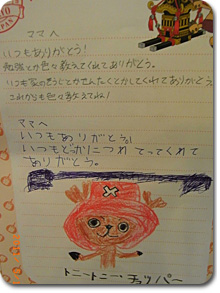 ママへ
いつもありがとう！
勉強とか色々教えてくれてありがとう。
いつも家のそうじとかせんたくとかしてくれてありがとう
これからも色々教えてね！
ママへ
いつもありがとう
いつもどっかにつれてってくれて
ありがとう。
トニートニー・チョッパー